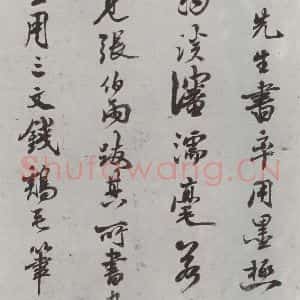 先生書卒用墨極
淡瀋濡毫若
張伯雨跋其所書
用三文錢鷄毛筆
Shufawang.CN